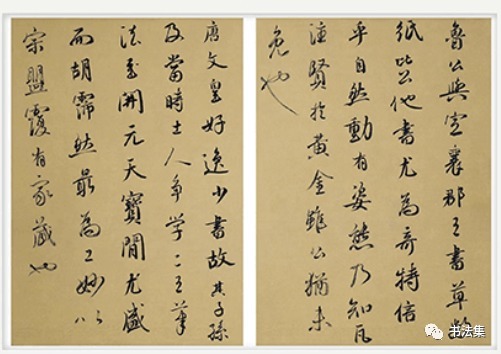 魯公與定襄郡王書草數
紙比公他書尤為奇特信
手自然動有姿態乃知瓦
注賢於黃金雖公猶未
免也
唐文皇好逸少書故其子孫
及當時士人爭學二王筆
法至開元天寶間尤盛
而胡霈然最為工妙以
宗盟覆有家藏也
书法集